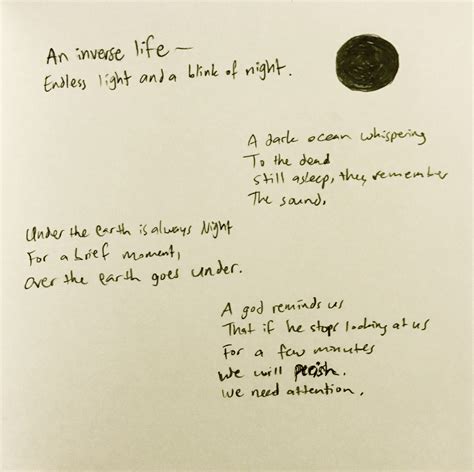 An inverse life —
Endless light and a blink of night.
A dark ocean whispering
To the dead
still asleep, they remember
The sound.
Under the earth is always Night
For a brief moment,
Over the earth goes under.
A god reminds us
That if he stops looking at us
For a few minutes
We will perish.
We need attention.